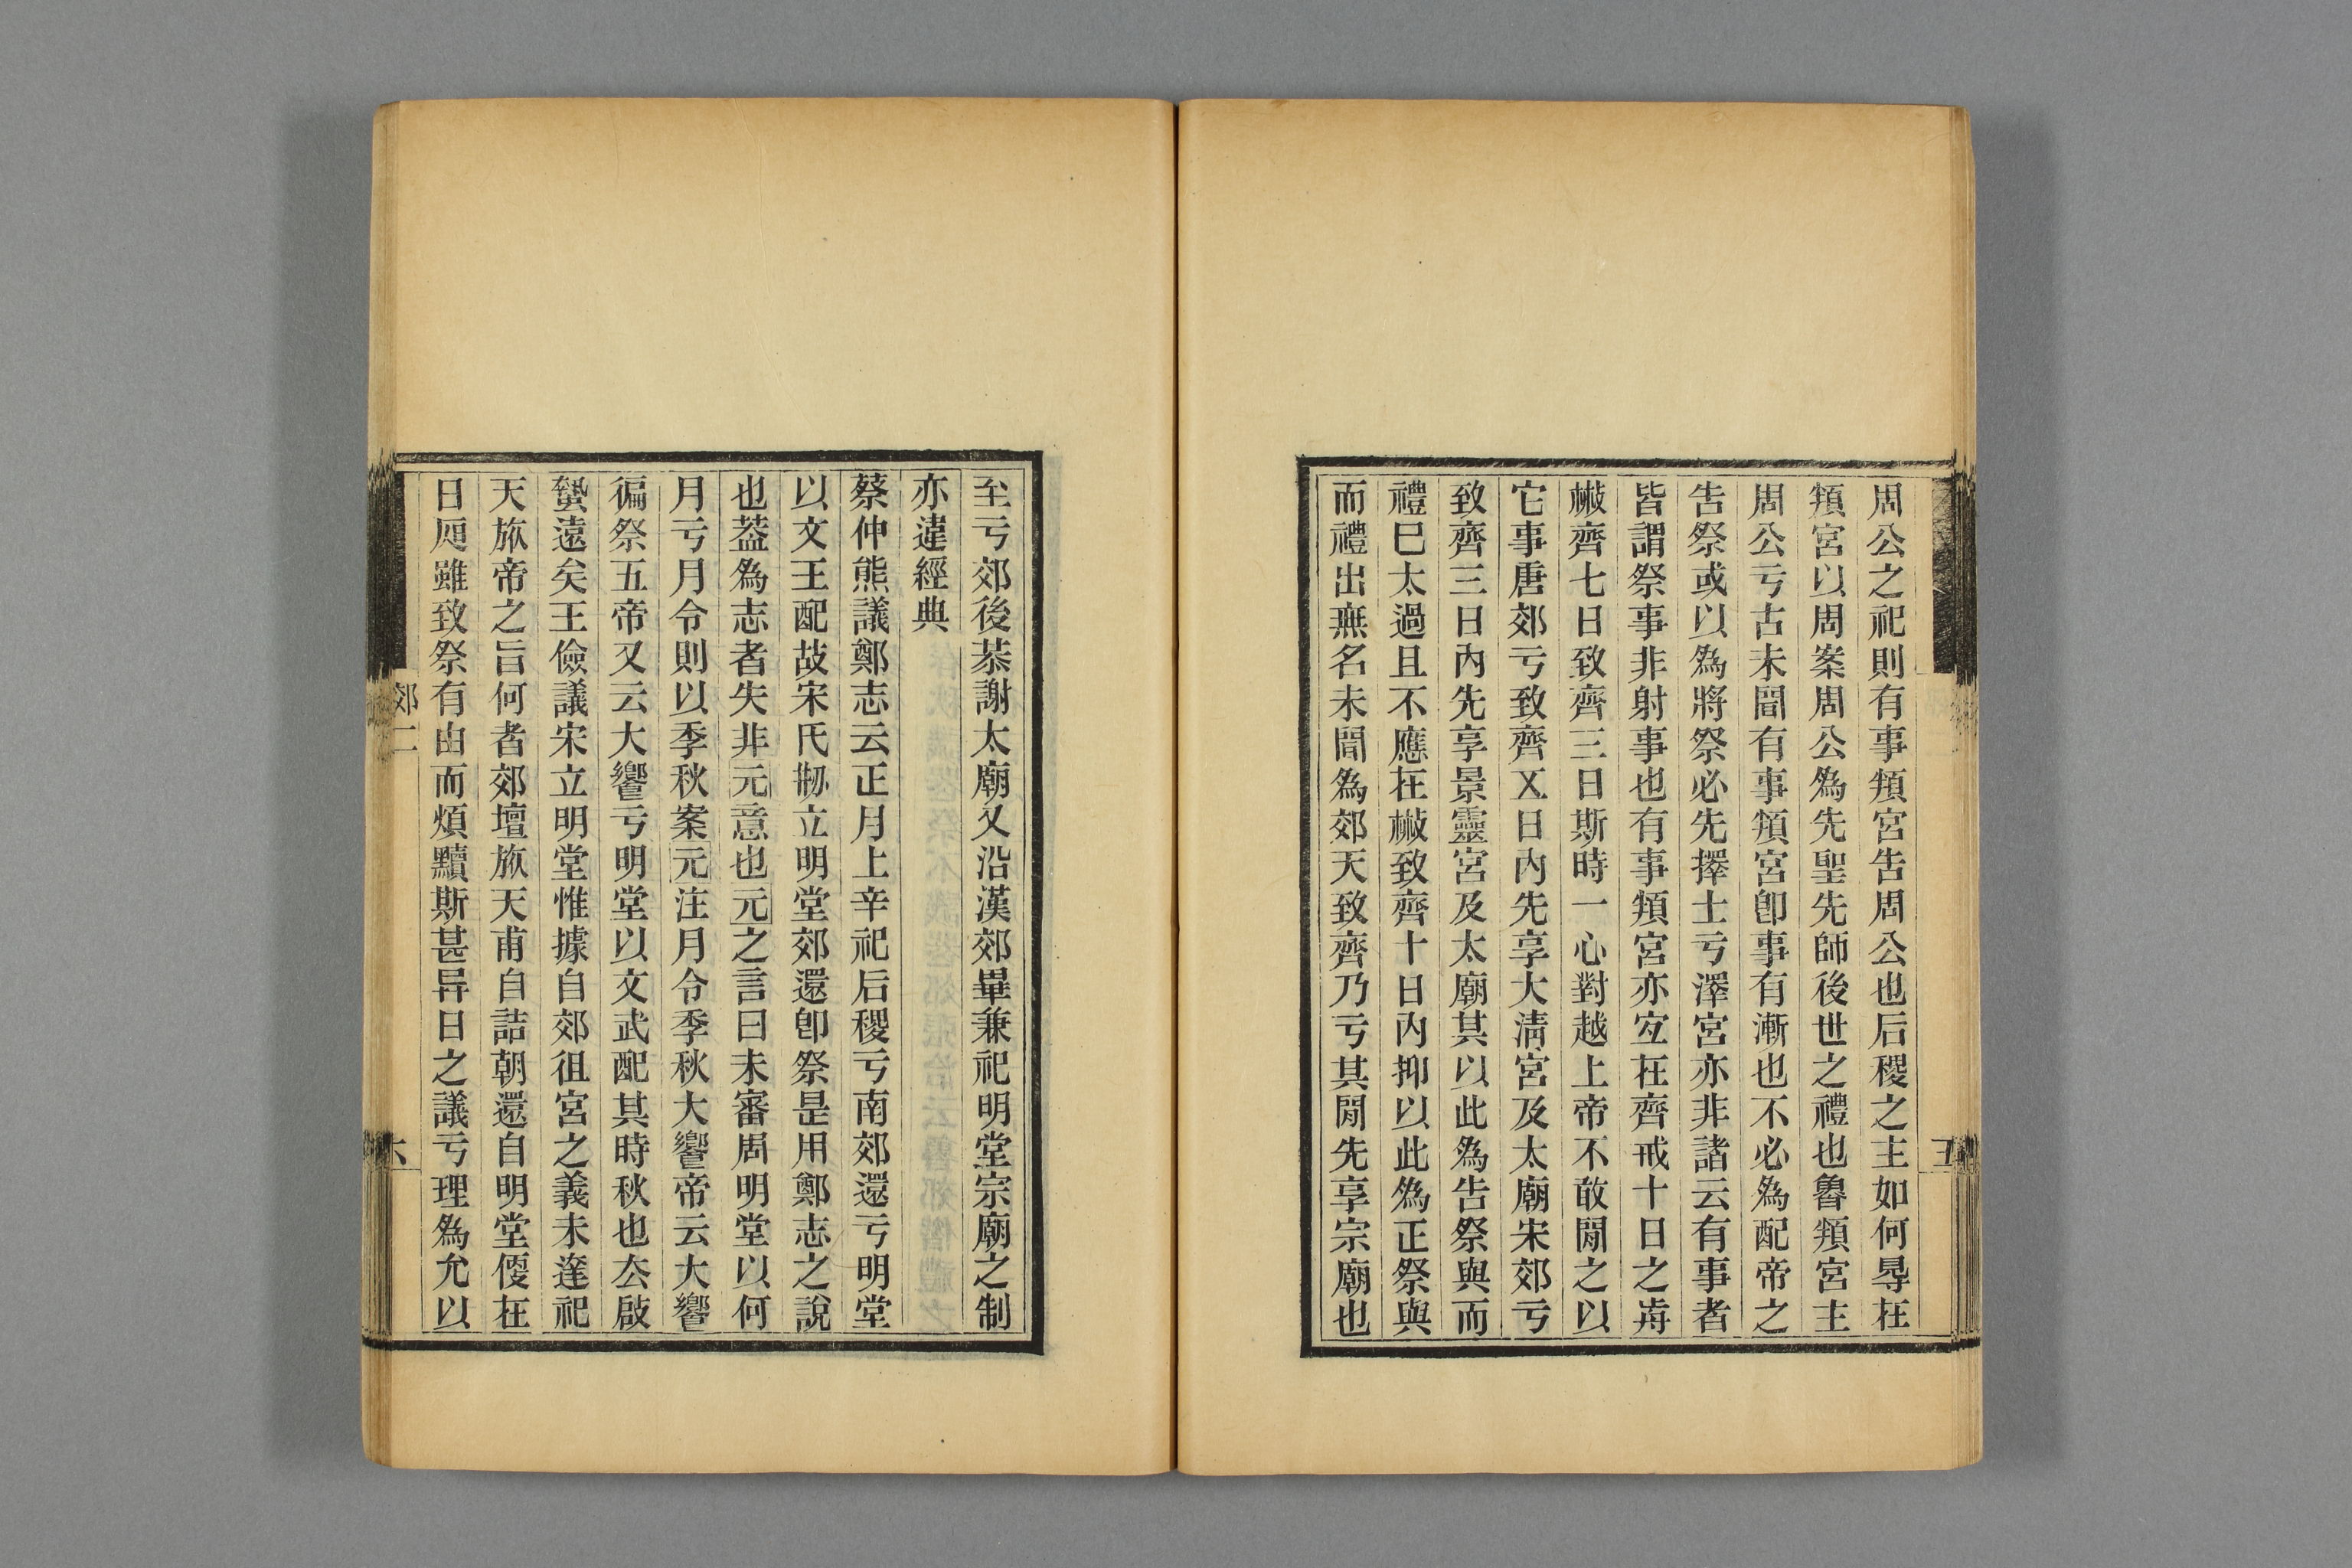 周公之祀則有事頖宮告周公也后稷之主如何㝵在
頖宮以周案周公爲先聖先師後世之禮也魯頖宮主
周公亏古未聞有事頖宮卽事有漸也不必爲配帝之
告祭或以爲將祭必先擇士亏澤宮亦非諸云有事者
皆謂祭事非射事也有事頖宮亦宐在齊戒十日之歬
㪔齊七日致齊三日斯時一心對越上帝不敢閒之以
它事唐郊亏致齊㐅日內先享大淸宮及太廟宋郊亏
致齊三日內先享景靈宮及太廟其以此爲告祭與而
禮巳太過且不應在㪔致齊十日內抑以此爲正祭與
而禮出無名未聞爲郊天致齊乃亏其閒先享宗廟也
五
至亏郊後恭謝太廟又沿漢郊畢兼祀明堂宗廟之制
亦違經典
蔡仲熊議鄭志云正月上辛祀后稷亏南郊還亏明堂
以文王配故宋氏刱立明堂郊還卽祭是用鄭志之說
也葢爲志者失非元意也元之言曰未審周明堂以何
月亏月令則以季秋案元注月令季秋大饗帝云大饗
徧祭五帝又云大饗亏明堂以文武配其時秋也厺啟
蟄遠矣王儉議宋立明堂惟據自郊徂宮之義未達祀
天旅帝之旨何者郊壇旅天甫自詰朝還自明堂便在
日昃雖致祭有由而煩黷斯甚异日之議亏理爲允以
郊二
六